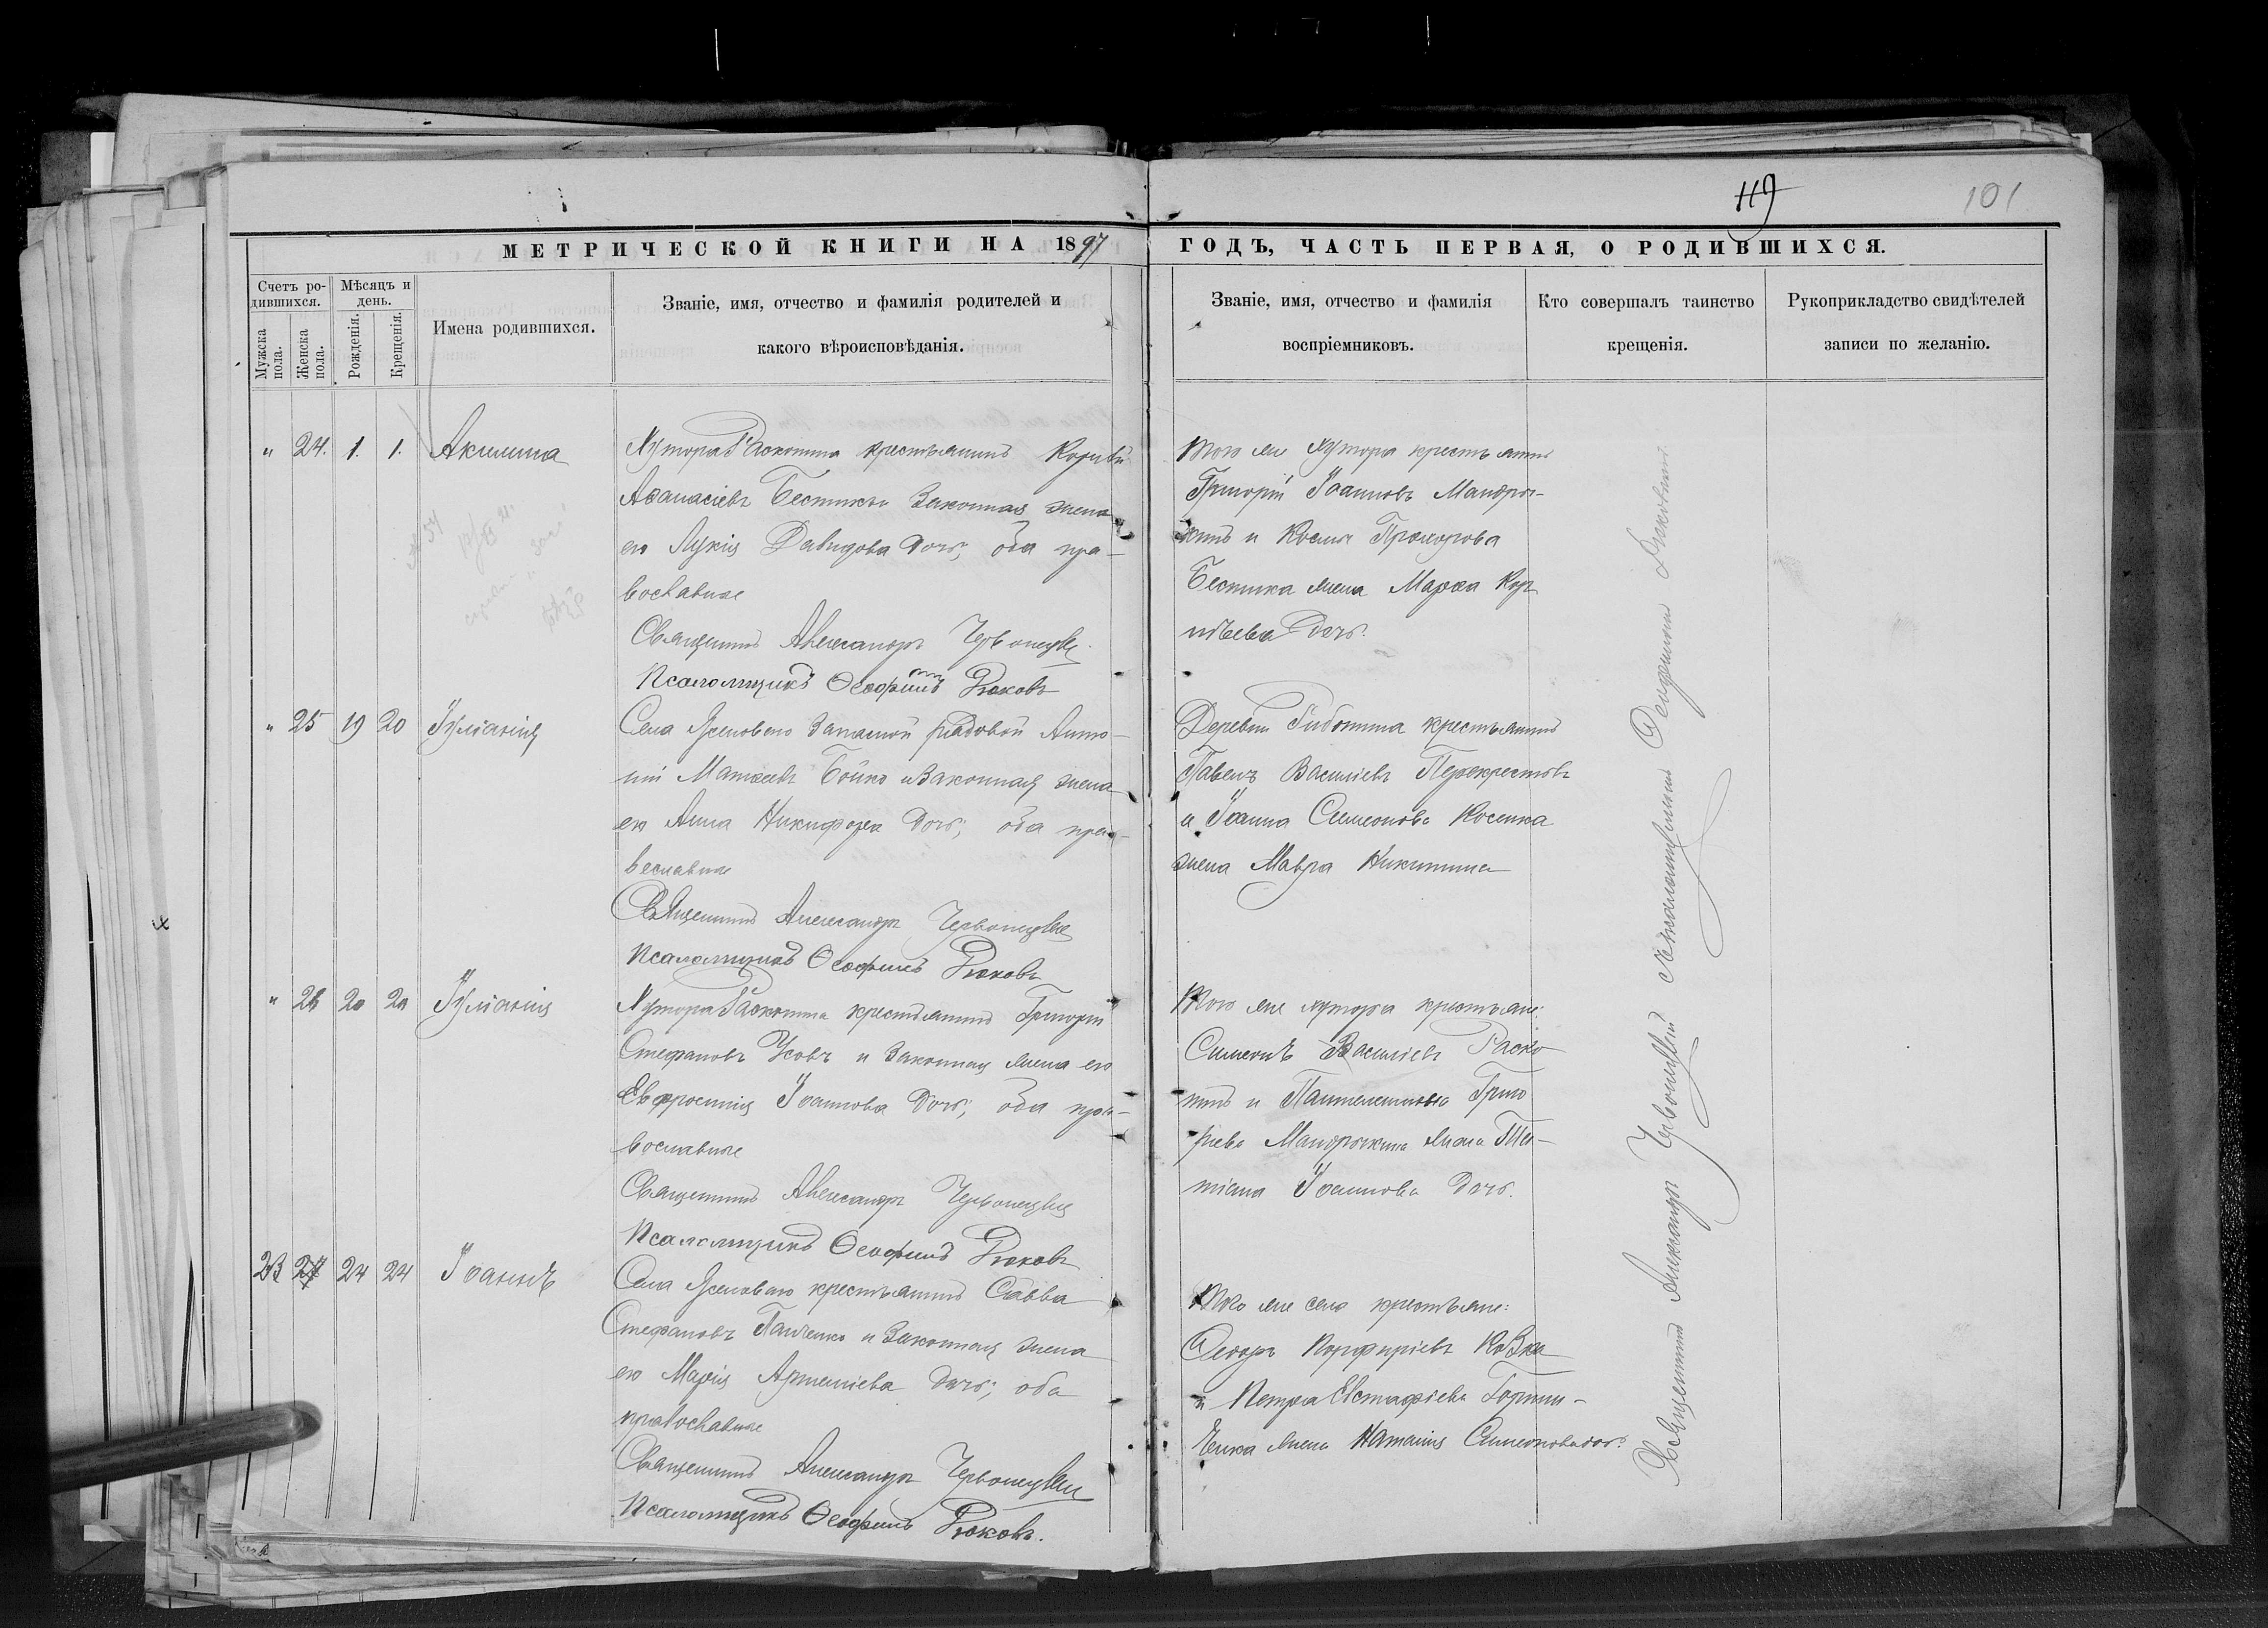 119
101
МЕТРИЧЕСКОЙ КНИГИ НА 1897 ГОДЪ, ЧАСТЬ ПЕРВАЯ, О РОДИВШИХСЯ.
Счетъ родившихся.
Мужска пола.
Женска пола.
Мѣсяцъ и день.
Рожденія.
Крещенія.
Имена родившихся.
Званіе, имя, отчество и фамилія родителей и
какого вѣроисповѣданія.
Званіе, имя, отчество и фамилія
воспріемниковъ.
Кто совершалъ таинство
крещенія.
Рукоприкладство свидѣтелей
записи по желанію.
" 24. 1. 1. Акилина
Хутора Раскопина крестьянинъ
Аѳанасіевъ законная жена
его Лукія Давидова дочь; оба пра-
вославные
Священникъ Александръ Червонецкій
Псаломщикъ Ѳеофилъ Рюковъ
Того же хутора крестьянинъ
Григорій Іоанновъ Мандры-
кинъ и Космы Прохорова
жена Марѳа Кор-
ніьева дочь.
" 25 19 20 Іуліанія
Села Ясеноваго запасной рядовой Анто-
ній Матѳеевъ Бойко и законная жена
его Анна Никифорова дочь; оба пра-
вославные
Священникъ Александръ Червонецкій
Псаломщикъ Ѳеофилъ Рюковъ
Деревни крестьянинъ
Павелъ Василіевъ Перекрестовъ
и Іоанна Симеонова Косенка
жена Мавра Никитина
" 26 20 20 Іуліанія
Хутора Раскопина крестьянинъ Григорій
Стефановъ Усовъ и законная жена его
Евфросинія Іоаннова дочь; оба пра-
вославные
Священникъ Александръ Червонецкій
Псаломщикъ Ѳеофилъ Рюковъ
Того же хутора крестьяне:
Симеонъ Василіевъ Раско-
пинъ и Пантелеимона Григо-
ріева Мандрыкина жена Та-
тіана Іоаннова дочь.
23 27 24 24 Іоаннъ
Села Ясеноваго крестьянинъ Савва
Стефановъ Панченко и законная жена
его Марія Артеміева дочь; оба
православные
Священникъ Александръ Червонецкій
Псаломщикъ Ѳеофилъ Рюковъ.
Того же села крестьяне:
Ѳеодоръ Порфиріевъ
и Петра Евстафіева
жена Наталія Симеонова дочь.
Священникъ Александръ Червонецкій